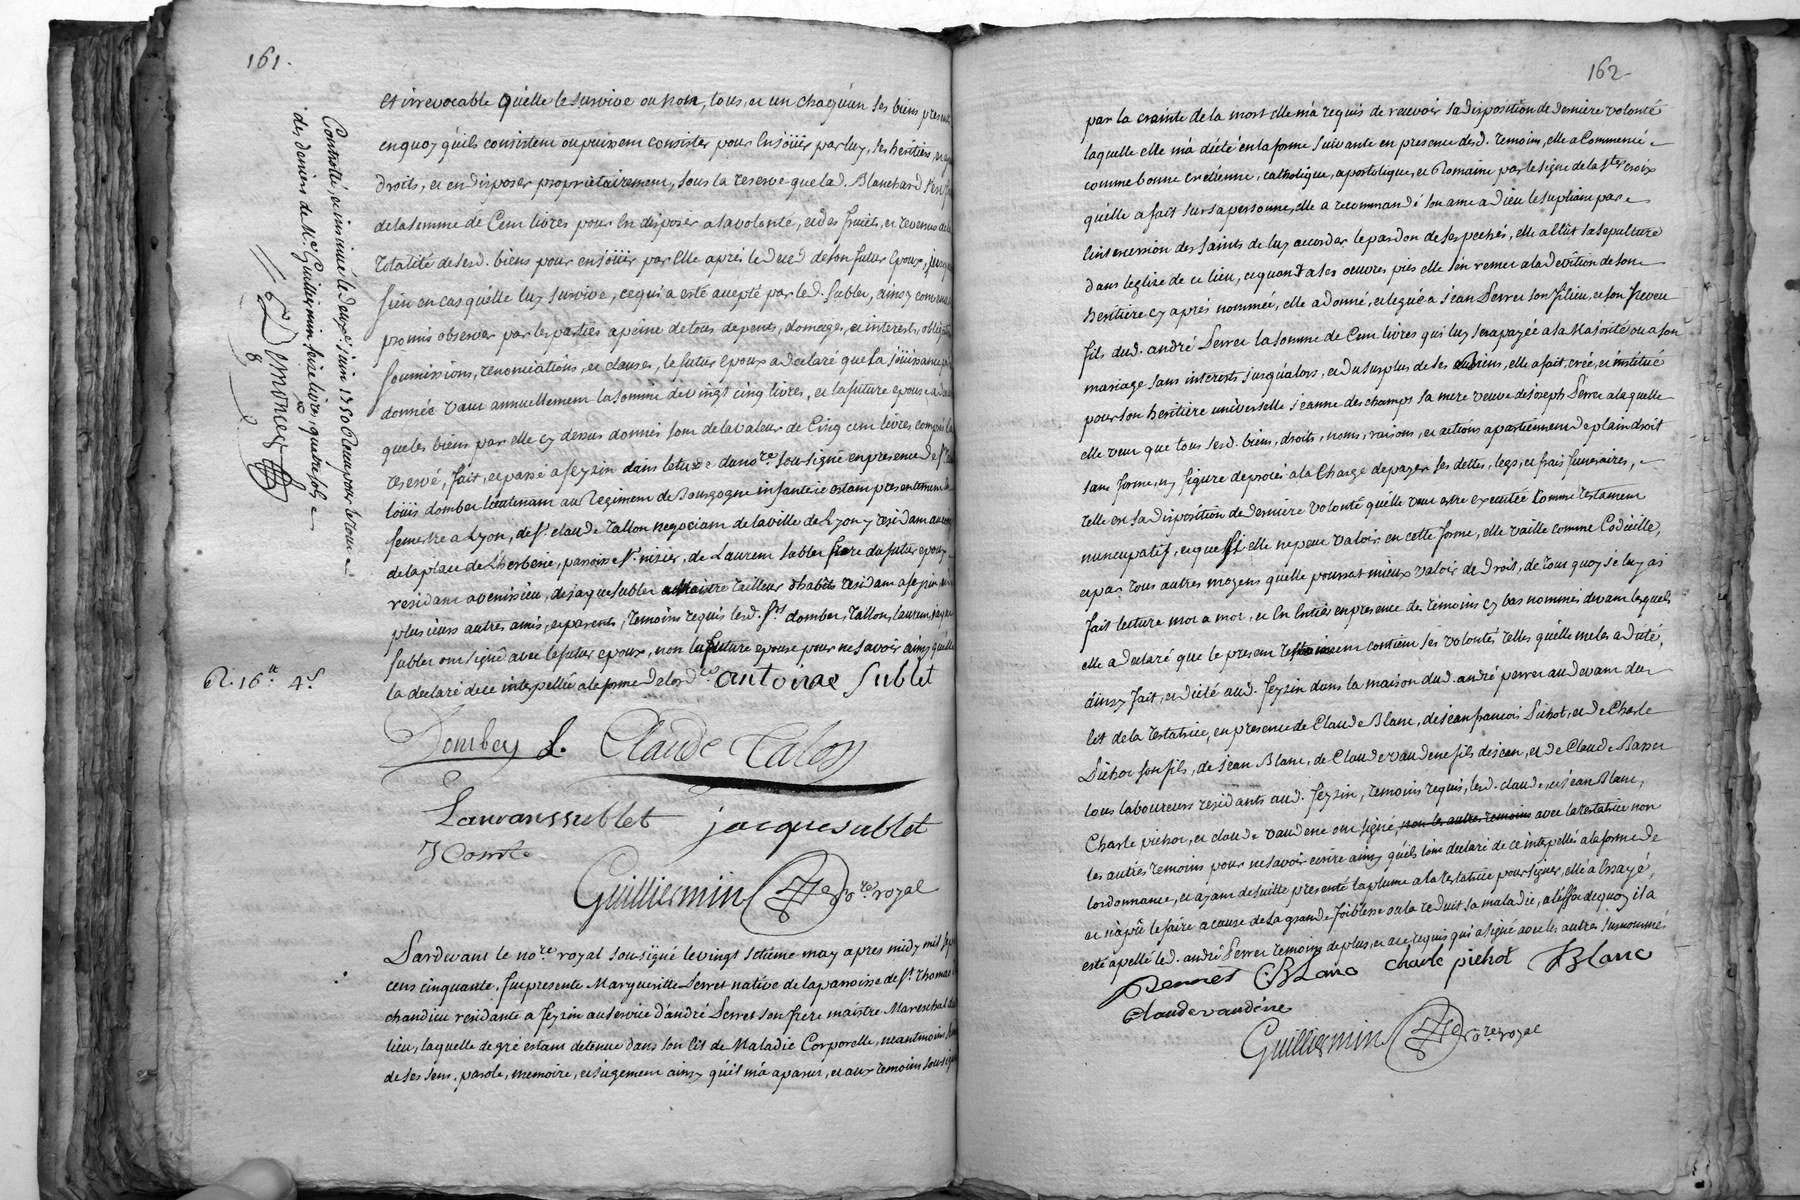 161.
et irrevocable qu'elle le survive ou non, tous, et un chaqu'un ses biens present
en quoy qu'ils consistent ou puissent consister pour En joüir par luy, ses heritiers,
droits, et en disposer proprietairement, sous la reserve que lad. Blanchard
de la somme de Cent livres pour En disposer a sa volonté, et des fruits, et revenus
totalité de sesd. biens pour en joüir par elle aprés le decéd de son futur Epoux,
sien en cas qu'elle luy survive, ce qui a esté accepté par led. Sublet, ainsy convenu
promis observer par les parties a peine de tous depents, domages, et interests,
soumissions, renonciations, et clauses, le futur epoux a declaré que la joüissance
donnée vaut annuellement la somme de vingt cinq livres, et la future epouse a
que les biens par elle cy dessus donnés sont de la valeur de Cinq cent livres compris la
reserve, fait, et passé a feyzin dans l'etude du no.re sousigné en presence de S.r
loüis dombey lieutenant au Regiment de Bourgogne infanterie estant presentement
semestre a Lyon, de S.r claude tallon negociant de la ville de Lyon y residant
de la place de L'herberie, paroisse S.t nizier, de Laurent Sublet frere du futur epoux
residant a venissieu, de jaque Sublet maitre tailleur d'habits residant a feyzin
plusieurs autres amis, et parents, temoins requis lesd. S.rs dombey, tallon, laurent,
Sublet ont signé avec le futur epoux, non la future epouse pour ne savoir ainsy qu'elle
la declaré de ce interpellée a la forme de lord.ce antoine Sublet
R. 16.tt 4.s
Dombey L. Claude Talon
Lauranssublet jacque sublet
J Comte
Guilliermin No.re royal
Controllé, et insinué le deux.e juin 1750 Receu pour le tout
des deniers de M.e Guilliermin seize livres, quatre sols
Pardevant le no.re royal sousigné le vingt setieme may apres midy mil sept
cens cinquante, fut presente Margueritte Perret native de la paroisse de S.t Thomas
chandieu residante a feyzin au service d'andré Perret son frere maistre Mareschal
lieu, laquelle de gré estant detenue dans son lit de Maladie Corporelle, neantmoins
de ses sens, parole, memoire, et jugement ainsy qu'il m'a aparut, et aux temoins sousignés
162
par la crainte de la mort elle m'a requis de recevoir sa disposition de derniere volonté
laquelle elle m'a dicté en la forme suivante en presence desd. temoins, elle a Commencé
comme bonne cretienne, catholique, apostolique, et Romaine par le signe de la S.te croix
qu'elle a fait sur sa personne, elle a recommandé son ame a Dieu le supliant par
l'intercession des saints de luy accorder le pardon de ses pechés, elle a Elût sa sepulture
dans leglise de ce lieu, et quant a ses oeuvres pies elle s'en remet a la devotion de son
heritiere cy aprés nommée, elle a donné, et legué a jean Perret son filieu, et son Neveu
fils dud. andré Perret la somme de Cent livres qui luy sera payée a sa Majorité ou a son
mariage sans interests jusqu'alors, et du surplus de ses biens, elle a fait, créé, et institué
pour son heritiere universelle jeanne deschamps sa mere veuve de joseph Perret a laquelle
elle veut que tous sesd. biens, droits, noms, raisons, et actions apartiennent de plain droit
sans forme, ny figure de procés a la Charge de payer ses dettes, legs, et frais funeraires,
telle en sa disposition de derniere volonté qu'elle veut estre executée Comme testament
nuncupatif, et que si elle ne peut valoir en cette forme, elle vaille comme Codicille,
et par tous autres moyens quelle pourrat mieux valoir de droit, de tout quoy je luy ai
fait lecture mot a mot, et En Entier en presence des temoins cy bas nommés devant lesquels
elle a declaré que le present testament contient ses volontés telles qu'elle me les a dicté,
ainsy fait, et dicté aud. feyzin dans la maison dud. andré perret au devant du
lit de la testatrice, en presence de Claude Blanc, de jean francois Pichot, et de Charle
Pichot son fils, de jean Blanc, de Claude vaudene fils de jean, et de Claude Basset
tous laboureurs residants aud. feyzin, temoins requis, lesd. claude, et jean Blanc,
Charle pichot, et claude vaudene ont signé, non les autres temoins avec la testatrice non
les autres temoins pour ne savoir ecrire ainsy qu'ils l'ont declaré de ce interpellés a la forme de
l'ordonnance, et ayant de suitte presenté la plume a la testatrice pour signer, elle a Essayé,
et n'a pû le faire a cause de la grande foiblesse ou la reduit sa maladie, a l'effet de quoy il a
esté apellé led. andré Perret temoins de plus, et a ce requis qui a signé avec les autres surnommés
Perret C. Blanc charle pichot J Blanc
Claude vaudéne
Guilliermin No.re royal